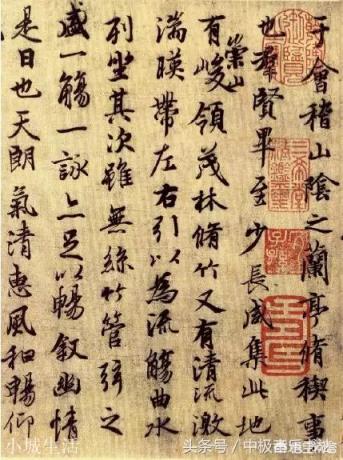 于會稽山陰之蘭亭脩稧事
也羣賢畢至少長咸集此地
有崇山峻領茂林脩竹又有清流激
湍暎帶左右引以為流觴曲水
列坐其次雖無絲竹管弦之
盛一觴一詠亦足以暢叙幽情
是日也天朗氣清惠風和暢仰
小城生活
头条号/中极